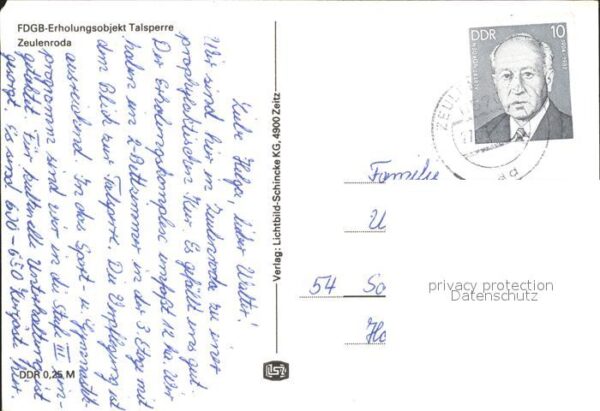 FDGB-Erholungsobjekt Talsperre
Zeulenroda
Liebe Helga, lieber Walter!
Wir sind hier in Zeulenroda zu einer
prophylaktischen Kur. Es gefällt uns gut.
Der Erholungskomplex umfaßt 12 ha. Wir
haben ein 2 Bettzimmer in der 3 Etage mit
dem Blick zur Talsperre. Die Verpflegung ist
ausreichend. In das Sport- u. Gymnastik-
programm sind wir in die Stufe III ein-
gestuft. Für kulturelle Unterhaltung ist
gesorgt. Es sind 600-650 Kurgäste hier.
DDR 0,25 M
Verlag: Lichtbild-Schincke KG, 4900 Zeitz
DDR 10
Familie
U
54 So
Ho
privacy protection
Datenschutz